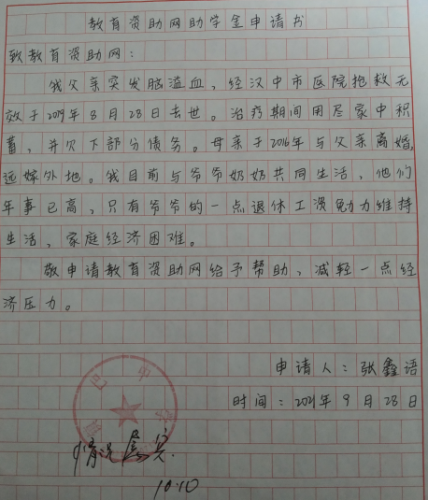 教育资助网助学金申请书
致教育资助网：
我父亲突发脑溢血，经汉中市医院抢救无
效于2019年8月28日去世。治疗期间用尽家中积
蓄，并欠下部分债务。母亲于2016年与父亲离婚，
远嫁外地。我目前与爷爷奶奶共同生活，他们
年事已高，只有爷爷的一点退休工资勉力维持
生活，家庭经济困难。
敬申请教育资助网给予帮助，减轻一点经
济压力。
申请人：张鑫语
时间：2021年9月28日
情况属实.
10.10